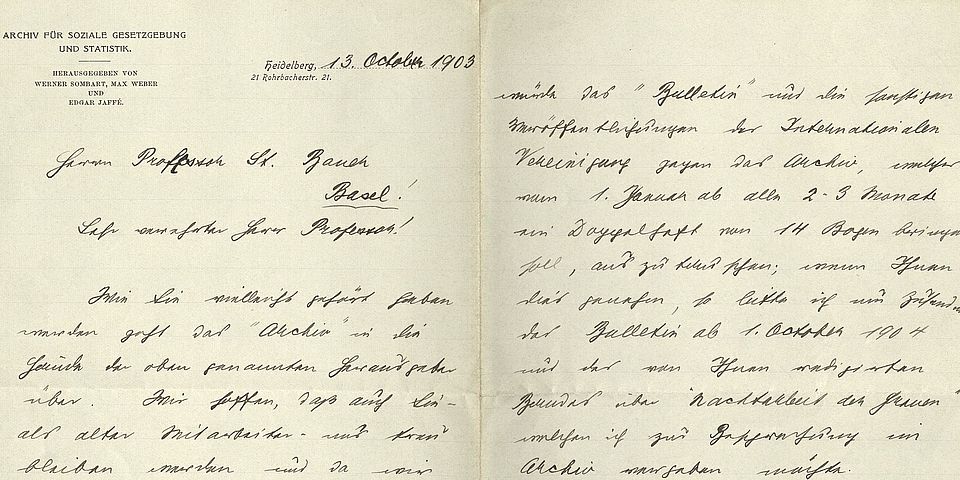 ARCHIV FÜR SOZIALE GESETZGEBUNG
UND STATISTIK.
HERAUSGEGEBEN VON
WERNER SOMBART, MAX WEBER
UND
EDGAR JAFFÉ.
Heidelberg, 13. October 1903
21 Rohrbacherstr. 21.
Herrn Professor St. Bauer
Basel!
Sehr verehrter Herr Professor!
Wie Sie vielleicht gehört haben
werden geht das "Archiv" in die
Hände der oben genannten Herausgeber
über. Wir hoffen, daß auch Sie -
als alter Mitarbeiter - uns treu
bleiben werden und da wir
würde das "Bulletin" und die sonstigen
Veröffentlichungen der Internationalen
Vereinigung gegen das Archiv, welches
vom 1. Januar ab alle 2-3 Monate
ein Doppelheft von 14 Bogen bringen
soll, auszutauschen; wenn Ihnen
dies genehm, so bitte ich um
des Bulletin ab 1. October 1904
und des von Ihnen redigirten
Bandes über "Nachtarbeit der Frauen"
welchen ich zur Besprechung im
Archiv vergeben möchte.